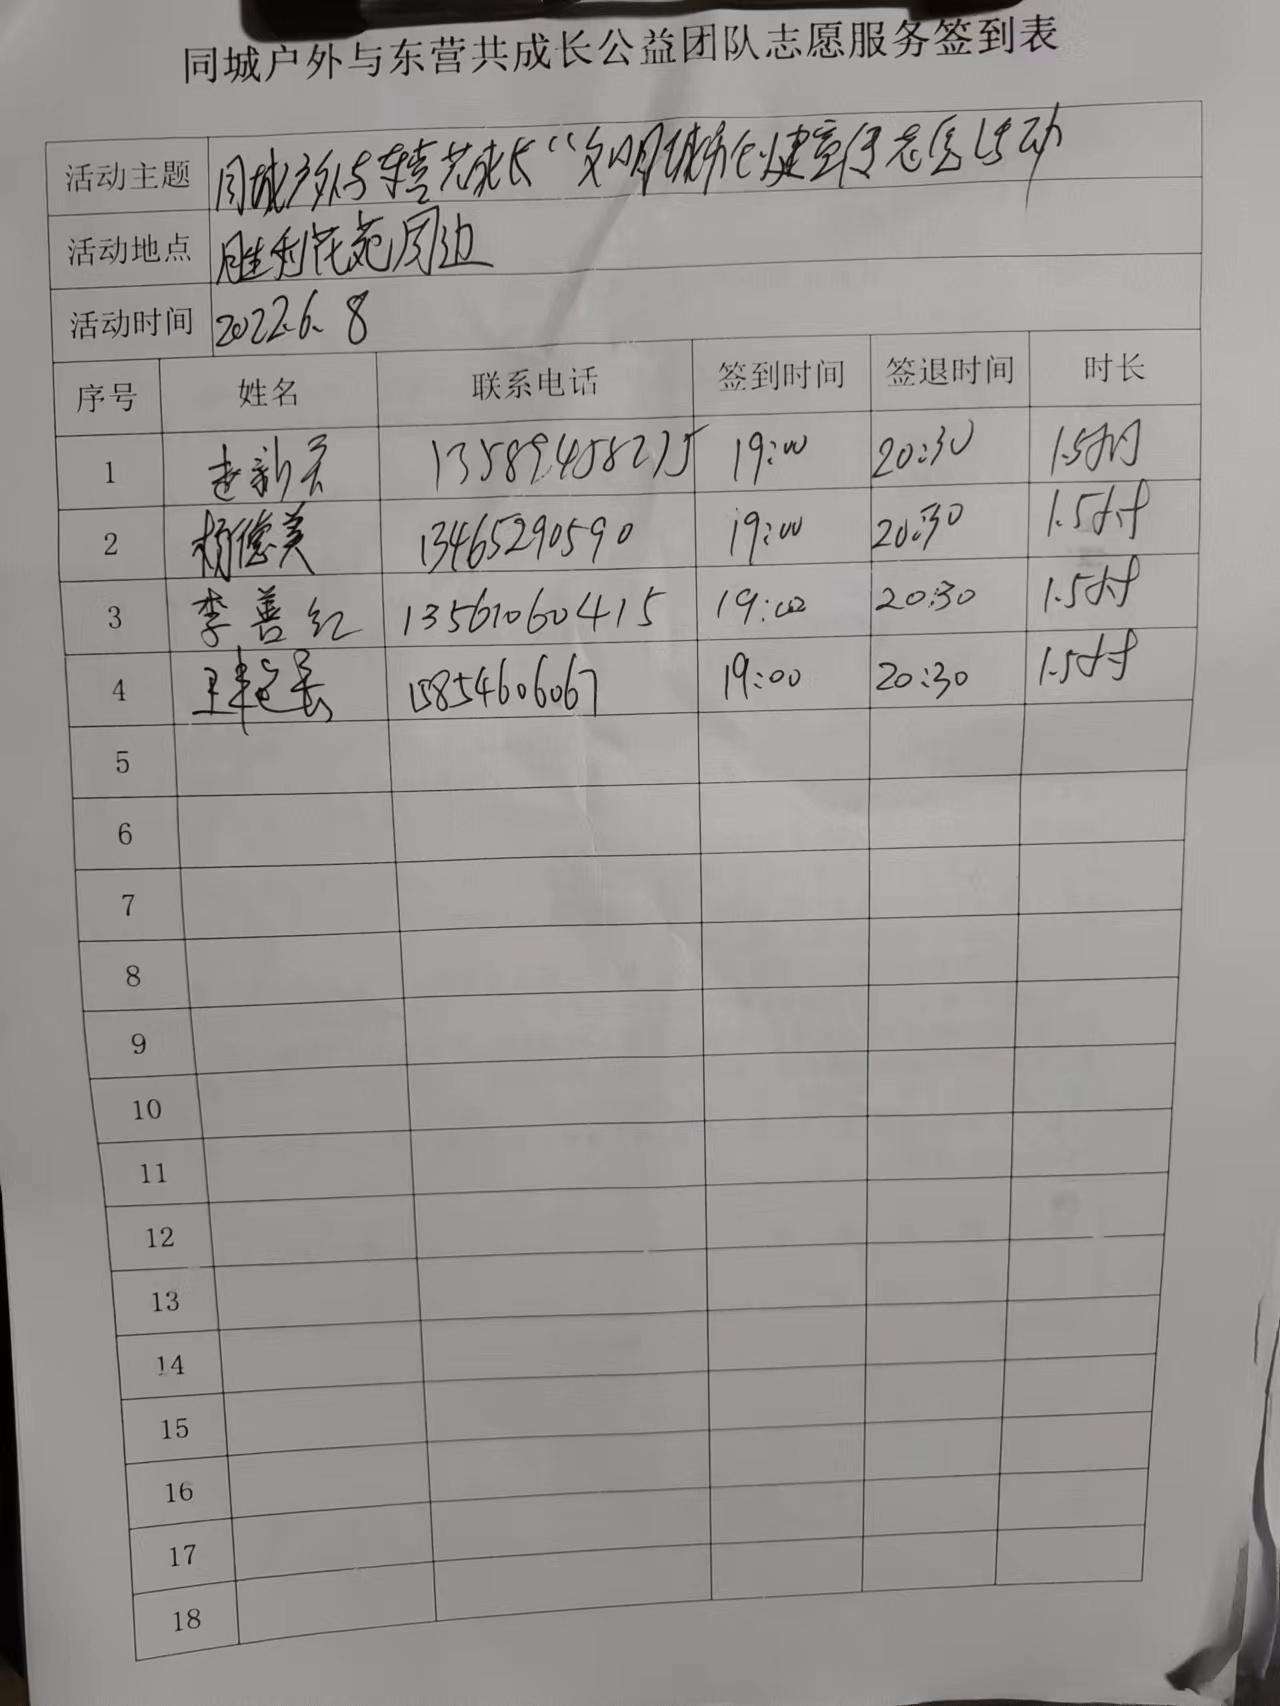 同城户外与东营共成长公益团队志愿服务签到表
活动主题 同城户外与东营共成长“文明城市创建宣传志愿活动
活动地点 胜利花苑周边
活动时间 2022.6.8
序号 姓名 联系电话 签到时间 签退时间 时长
1 赵新 13589458275 19:00 20:30 1.5小时
2 杨德美 13465290590 19:00 20:30 1.5小时
3 李善红 13561060415 19:00 20:30 1.5小时
4 王 长 15854606067 19:00 20:30 1.5小时
5
6
7
8
9
10
11
12
13
14
15
16
17
18